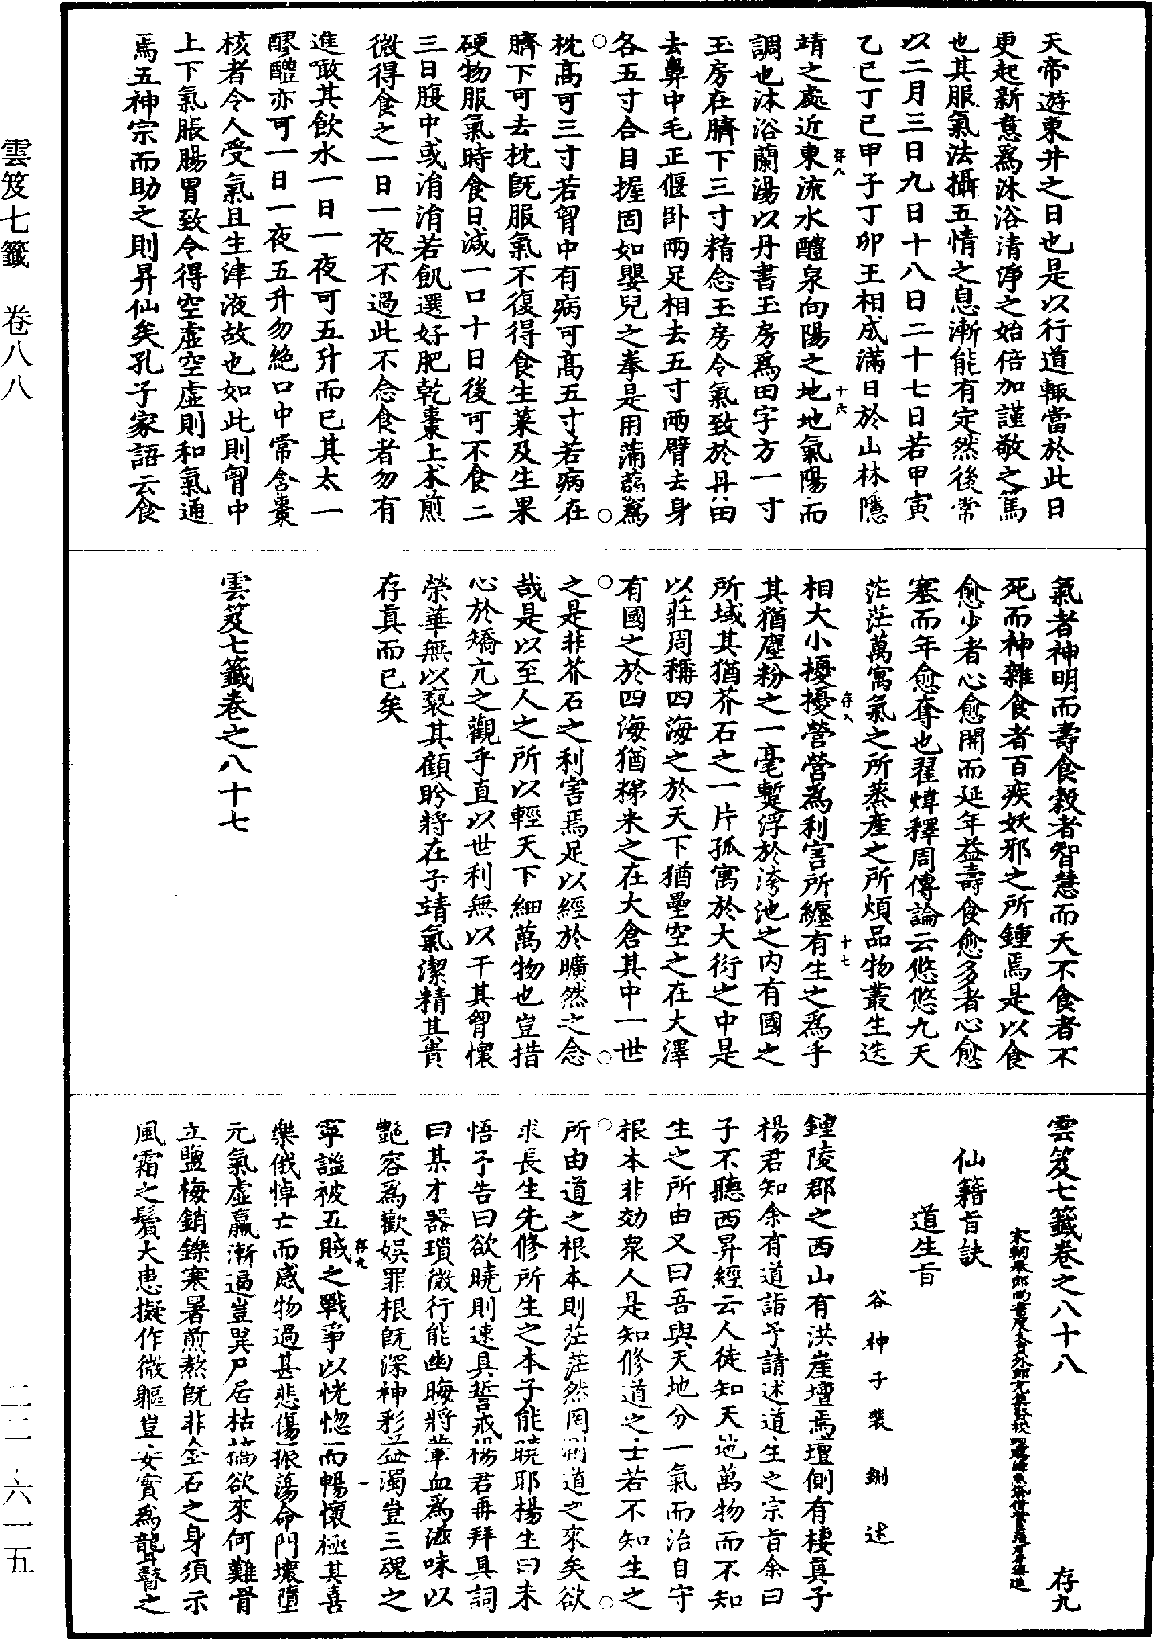 天帝遊東井之日也是以行道輒當於此日
更起新意爲沐浴清淨之始倍加謹敬之篤
也其服氣法攝五情之息漸能有定然後常
以二月三日九日十八日二十七日若甲寅
乙巳丁巳甲子丁卯王相成滿日於山林隱
存八
十六
靖之處近東流水醴泉向陽之地地氣陽而
調也沐浴蘭湯以丹書玉房爲田字方一寸
玉房在臍下三寸精念玉房令氣致於丹田
去鼻中毛正偃卧兩足相去五寸兩臂去身
各五寸合目握固如嬰兒之拳是用蒲蒻爲
枕高可三寸若胷中有病可高五寸若病在
臍下可去枕旣服氣不復得食生菜及生果
硬物服氣時食日減一口十日後可不食二
三日腹中或淯淯若飢選好肥乾棗上术煎
微得食之一日一夜不過此不念食者勿有
進噉其飲水一日一夜可五升而已其太一
醪醴亦可一日一夜五升勿絶口中常含棗
核者令人受氣且生津液故也如此則胷中
上下氣脹腸胃致令得空虛空虛則和氣通
焉五神宗而助之則昇仙矣孔子家語云食
氣者神明而壽食穀者智慧而夭不食者不
死而神雜食者百疾妖邪之所鍾焉是以食
愈少者心愈開而延年益壽食愈多者心愈
塞而年愈奪也翟煒釋周傳論云悠悠九天
茫茫萬寓氣之所蒸產之所煩品物叢生迭
存八
十七
相大小擾擾營營爲利害所纏有生之爲乎
其猶塵粉之一毫蹔浮於洿池之内有國之
所域其猶芥石之一片孤寓於大衍之中是
以莊周稱四海之於天下猶壘空之在大澤
有國之於四海猶稊米之在大倉其中一世
之是非芥石之利害焉足以經於曠然之念
哉是以至人之所以輕天下細萬物也豈措
心於矯亢之觀乎直以世利無以干其胷懷
榮華無以褻其顧盻將在乎靖氣潔精其貴
存真而已矣
雲笈七籤卷之八十七
雲笈七籤卷之八十八
存九
仙籍旨訣
道生旨
谷神子裴鉶述
鍾陵郡之西山有洪崖壇焉壇側有棲真子
楊君知余有道詣予請述道生之宗旨余曰
子不聽西昇經云人徒知天地萬物而不知
生之所由又曰吾與天地分一氣而治自守
根本非効衆人是知修道之士若不知生之
所由道之根本則茫茫然罔測道之來矣欲
求長生先修所生之本子能曉耶楊生曰未
悟予告曰欲曉則速具誓戒楊君再拜具詞
曰某才器瑣微行能幽晦將葷血爲滋味以
艷容爲歡娛罪根旣深神彩益濁豈三魂之
存九
一
寧謐被五賊之戰爭以恍惚而暢懷極其喜
樂俄悼亡而感物過甚悲傷振蕩命門壞墮
元氣虛羸漸逼豈異尸居枯槁欲來何難骨
立鹽梅銷鑠寒暑煎熬旣非金石之身須示
風霜之鬢大患擬作微軀豈安實爲聾瞽之
雲笈七籤 卷八八
二二·六一五